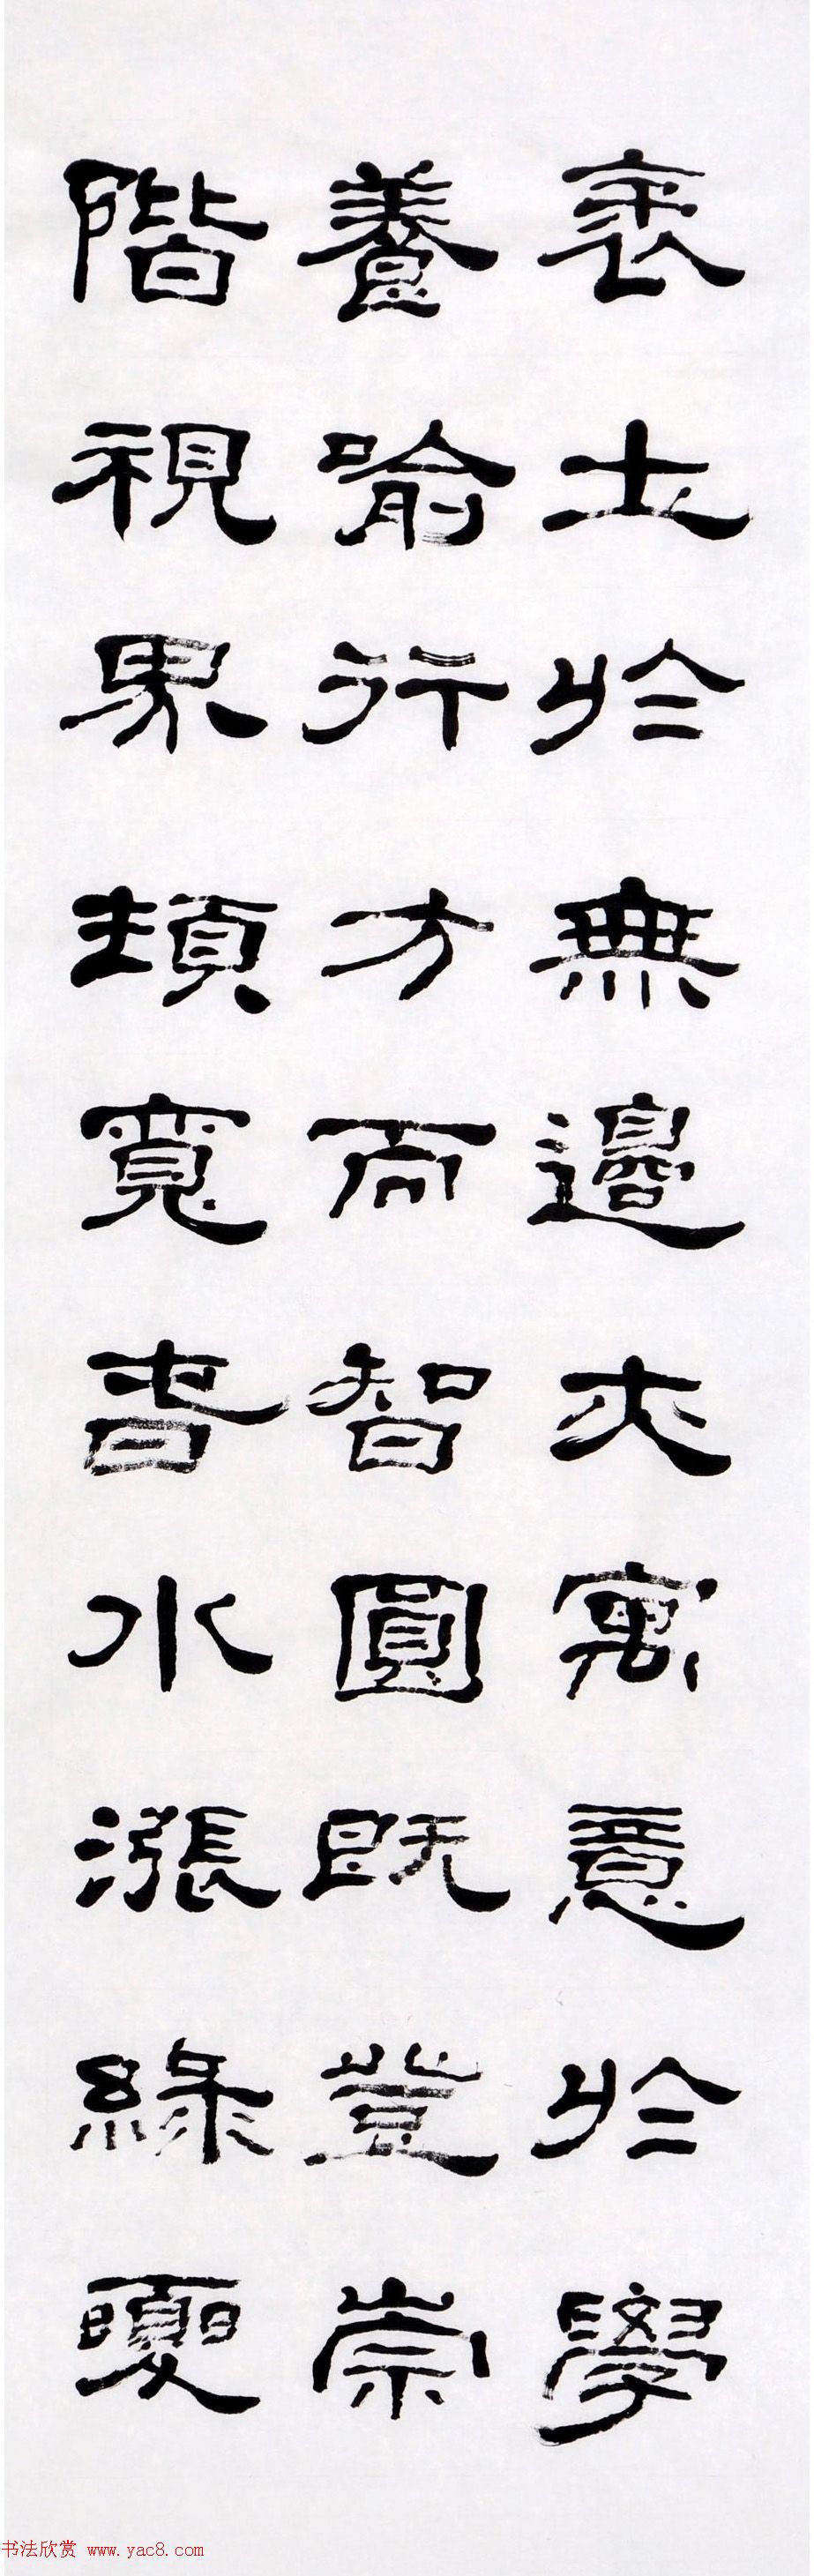 袤土於無邊夫寓意於學
養喻行方而智圓既登崇
階視界頓寬春水漲綠夏
书法欣赏 www.yac8.com